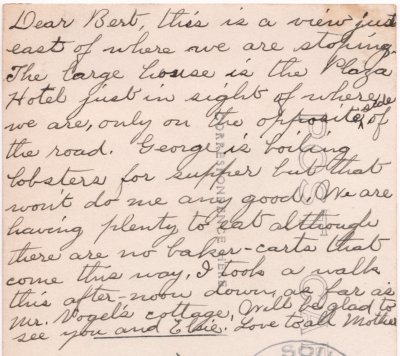 Dear Bert, this is a view just
east of where we are stoping.
The large house is the Plaza
Hotel just in sight of where
we are, only on the opposite side of
the road. George is boiling
lobsters for supper but that
won't do me any good. We are
having plenty to eat although
there are no baker-carts that
come this way. I took a walk
this after-noon down as far as
Mr. Vogel's cottage, Will be glad to
see you and Elsie. Love to all Mother
CORRESPONDENCE HERE
SOU